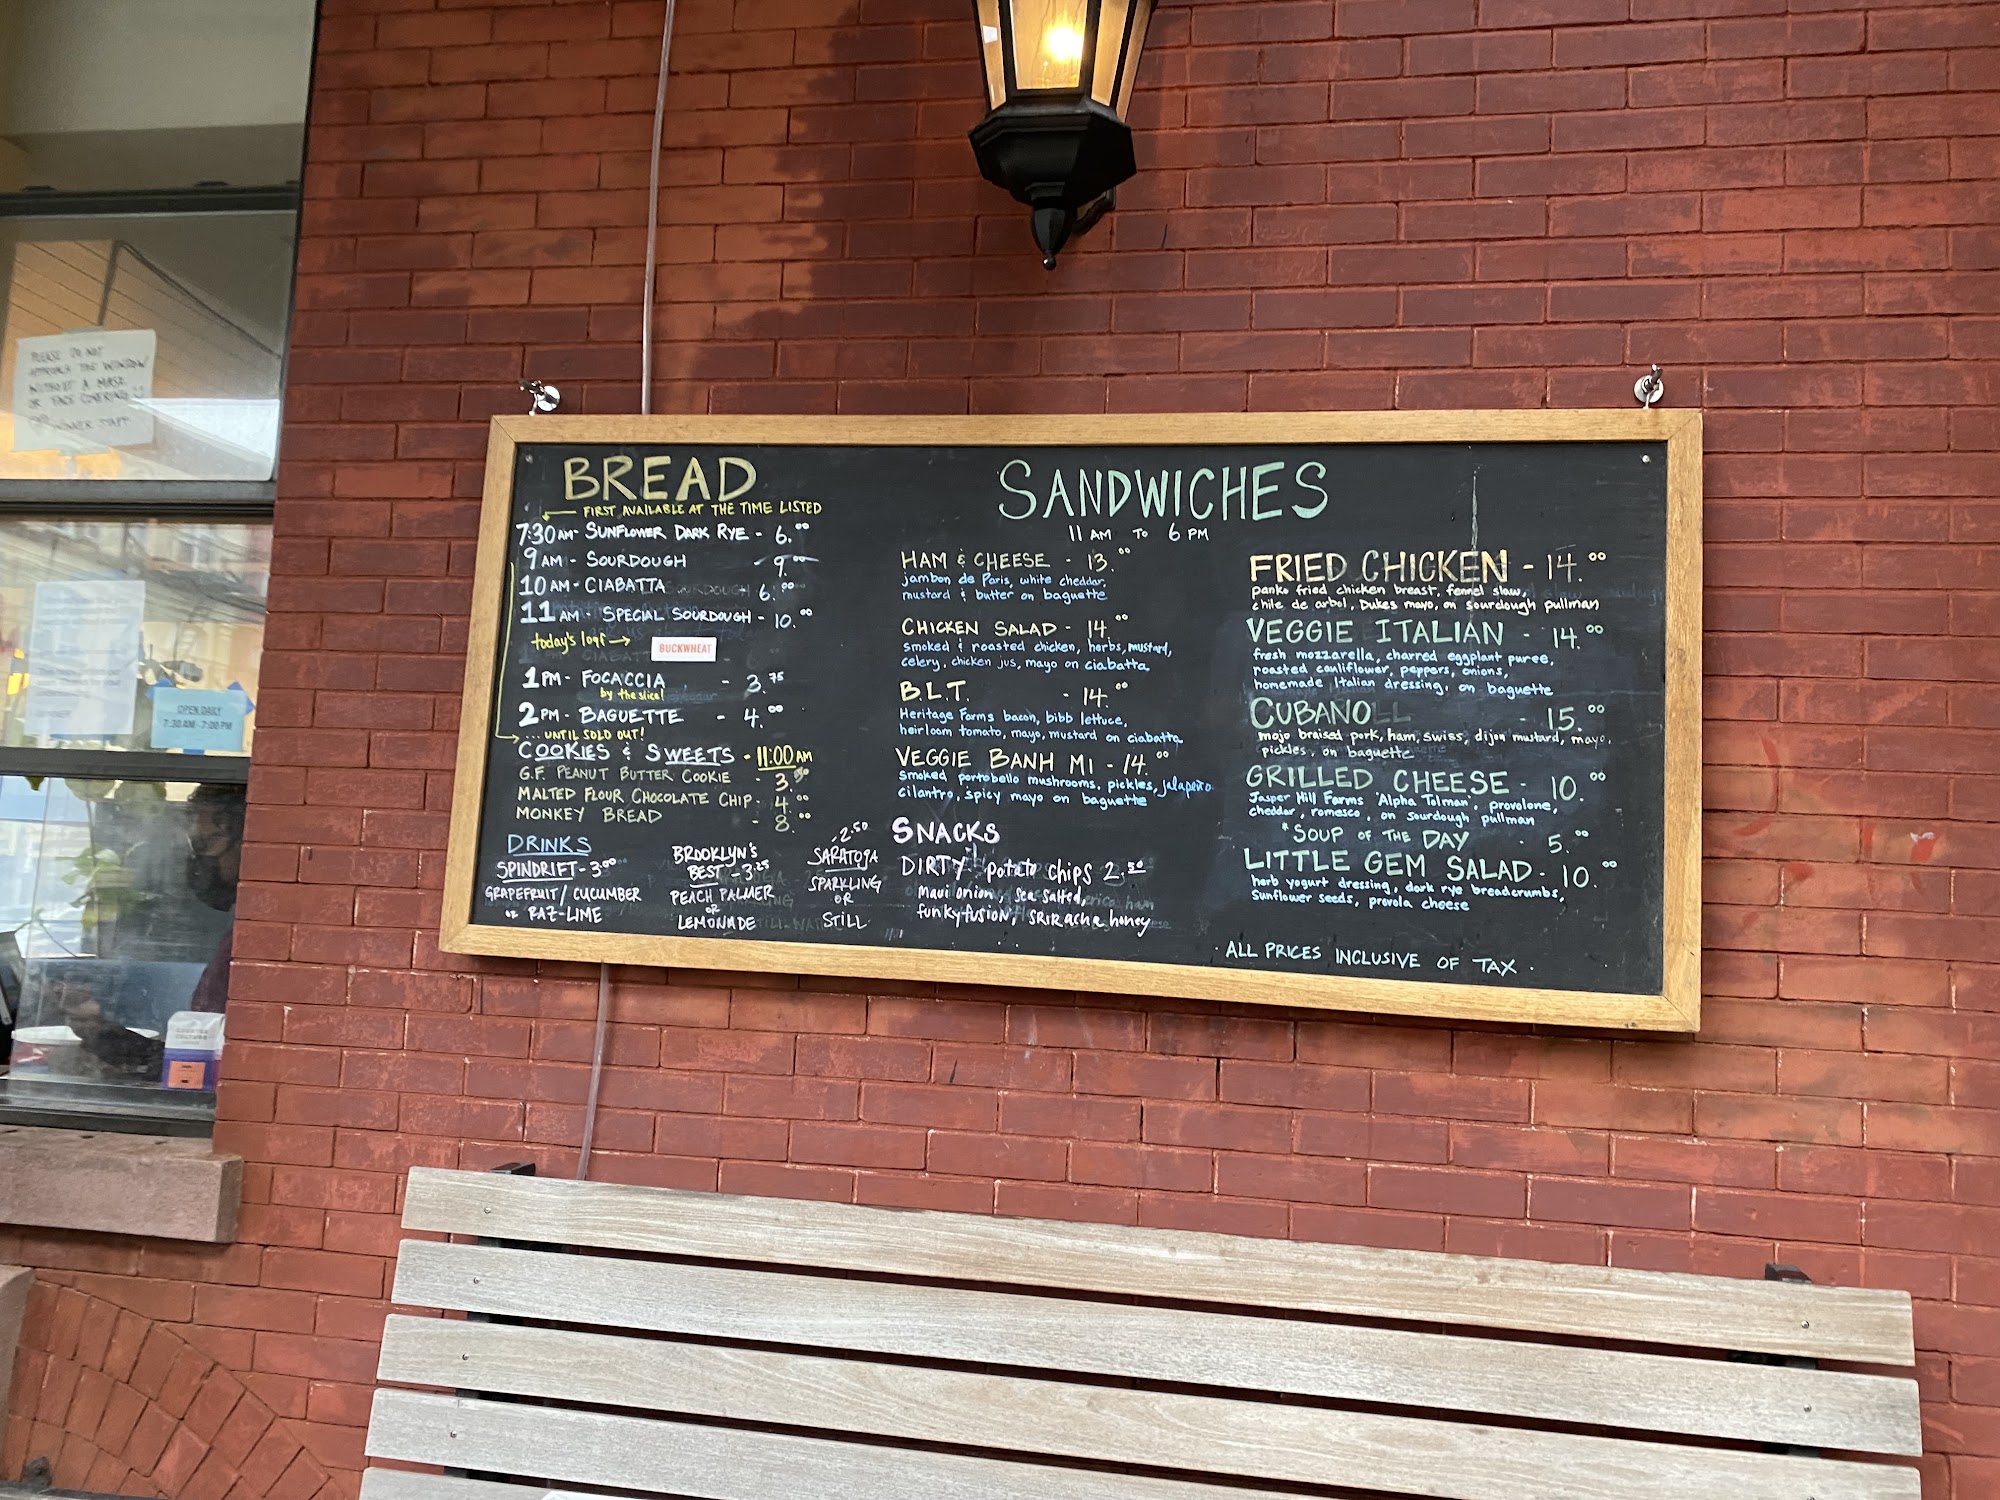 PLEASE DO NOT
APPROACH THE WINDOW
WITHOUT A MASK
OR FACE COVERING
WINNER STAFF
OPEN DAILY
7:30 AM - 7:00 PM
BREAD
FIRST AVAILABLE AT THE TIME LISTED
7:30 AM - SUNFLOWER DARK RYE - 6.00
9 AM - SOURDOUGH - 9.00
10 AM - CIABATTA 6.00
11 AM - SPECIAL SOURDOUGH - 10.00
today's loaf → BUCKWHEAT
1 PM - FOCACCIA - 3.75
by the slice!
2 PM - BAGUETTE - 4.00
... UNTIL SOLD OUT!
COOKIES & SWEETS - 11:00 AM
G.F. PEANUT BUTTER COOKIE - 3.
MALTED FLOUR CHOCOLATE CHIP - 4.00
MONKEY BREAD - 8.00
DRINKS
SPINDRIFT - 3.00
GRAPEFRUIT / CUCUMBER
or RAZ-LIME
BROOKLYN'S
BEST - 3.25
PEACH PALMER
OR
LEMONADE
- 2.50
SARATOGA
SPARKLING
OR
STILL
SANDWICHES
11 AM TO 6 PM
HAM & CHEESE - 13.00
jambon de Paris, white cheddar,
mustard & butter on baguette
CHICKEN SALAD - 14.00
smoked & roasted chicken, herbs, mustard,
celery, chicken jus, mayo on ciabatta
B.L.T. - 14.00
Heritage Farms bacon, bibb lettuce,
heirloom tomato, mayo, mustard on ciabatta
VEGGIE BANH MI - 14.00
smoked portobello mushrooms, pickles, jalapeño
cilantro, spicy mayo on baguette
SNACKS
DIRTY potato chips 2.50
maui onion, sea salted,
funky fusion, sriracha honey
FRIED CHICKEN - 14.00
panko fried chicken breast, fennel slaw,
chile de arbol, Dukes mayo, on sourdough pullman
VEGGIE ITALIAN - 14.00
fresh mozzarella, charred eggplant puree,
roasted cauliflower, peppers, onions,
homemade Italian dressing, on baguette
CUBANO - 15.00
mojo braised pork, ham, swiss, dijon mustard, mayo,
pickles, on baguette
GRILLED CHEESE - 10.00
Jasper Hill Farms 'Alpha Tolman', provolone,
cheddar, romesco, on sourdough pullman
*SOUP OF THE DAY - 5.00
LITTLE GEM SALAD - 10.00
herb yogurt dressing, dark rye breadcrumbs,
sunflower seeds, provola cheese
· ALL PRICES INCLUSIVE OF TAX ·